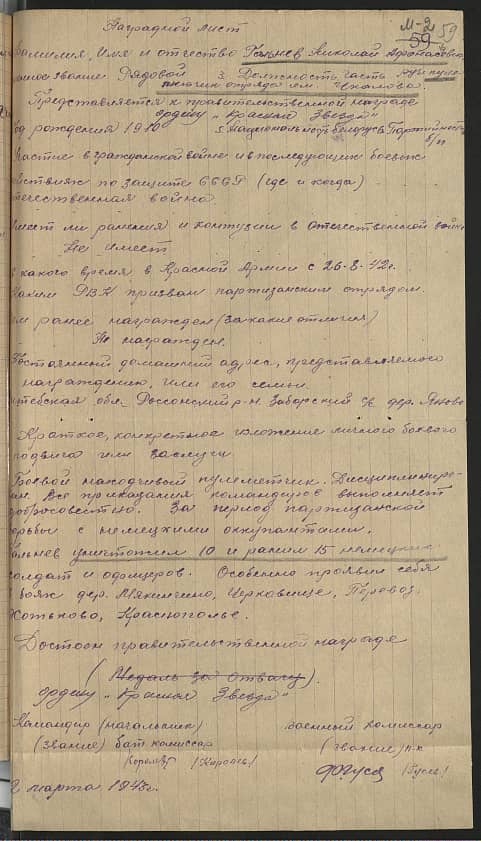 М-2
59
59
Наградной лист
Фамилия, Имя и отчество Николай Афанасьевич
звание Рядовой 3. Должность, часть
отряда им. Чкалова
Представляется к правительственной награде
ордену „Красная Звезда"
Год рождения 1910 5. Национальность белорус 6. Партийность б/п
Участие в гражданской войне и в последующих боевых
действиях по защите СССР (где и когда)
отечественная война.
Имеет ли ранения и контузии в отечественной войне
Не имеет
С какого время в Красной Армии с 26-8-42г.
Каким РВК призван партизанским отрядом.
Чем ранее награжден (за какие отличия)
Не награжден.
Постоянный домашний адрес, представляемого
к награждению, или его семьи
Витебская обл. Россонский р-н. Заборский с/с дер.
Краткое, конкретное изложение личного боевого
подвига или заслуги.
Боевой находчивый пулеметчик. Дисциплиниро-
ван. Все приказания командиров выполняет
добросовестно. За период партизанской
борьбы с немецкими оккупантами,
уничтожил 10 и ранил 15 немецких
солдат и офицеров. Особенно проявил себя
в боях дер. Мякинчино, Черковище, Перевоз,
Хотьково, Краснополье.
Достоин правительственной награде
(Медаль за отвагу).
ордену „Красная Звезда"
Командир (начальник) военный комиссар
(звание) бат. комиссар (звание) п-к
марта 1943г.